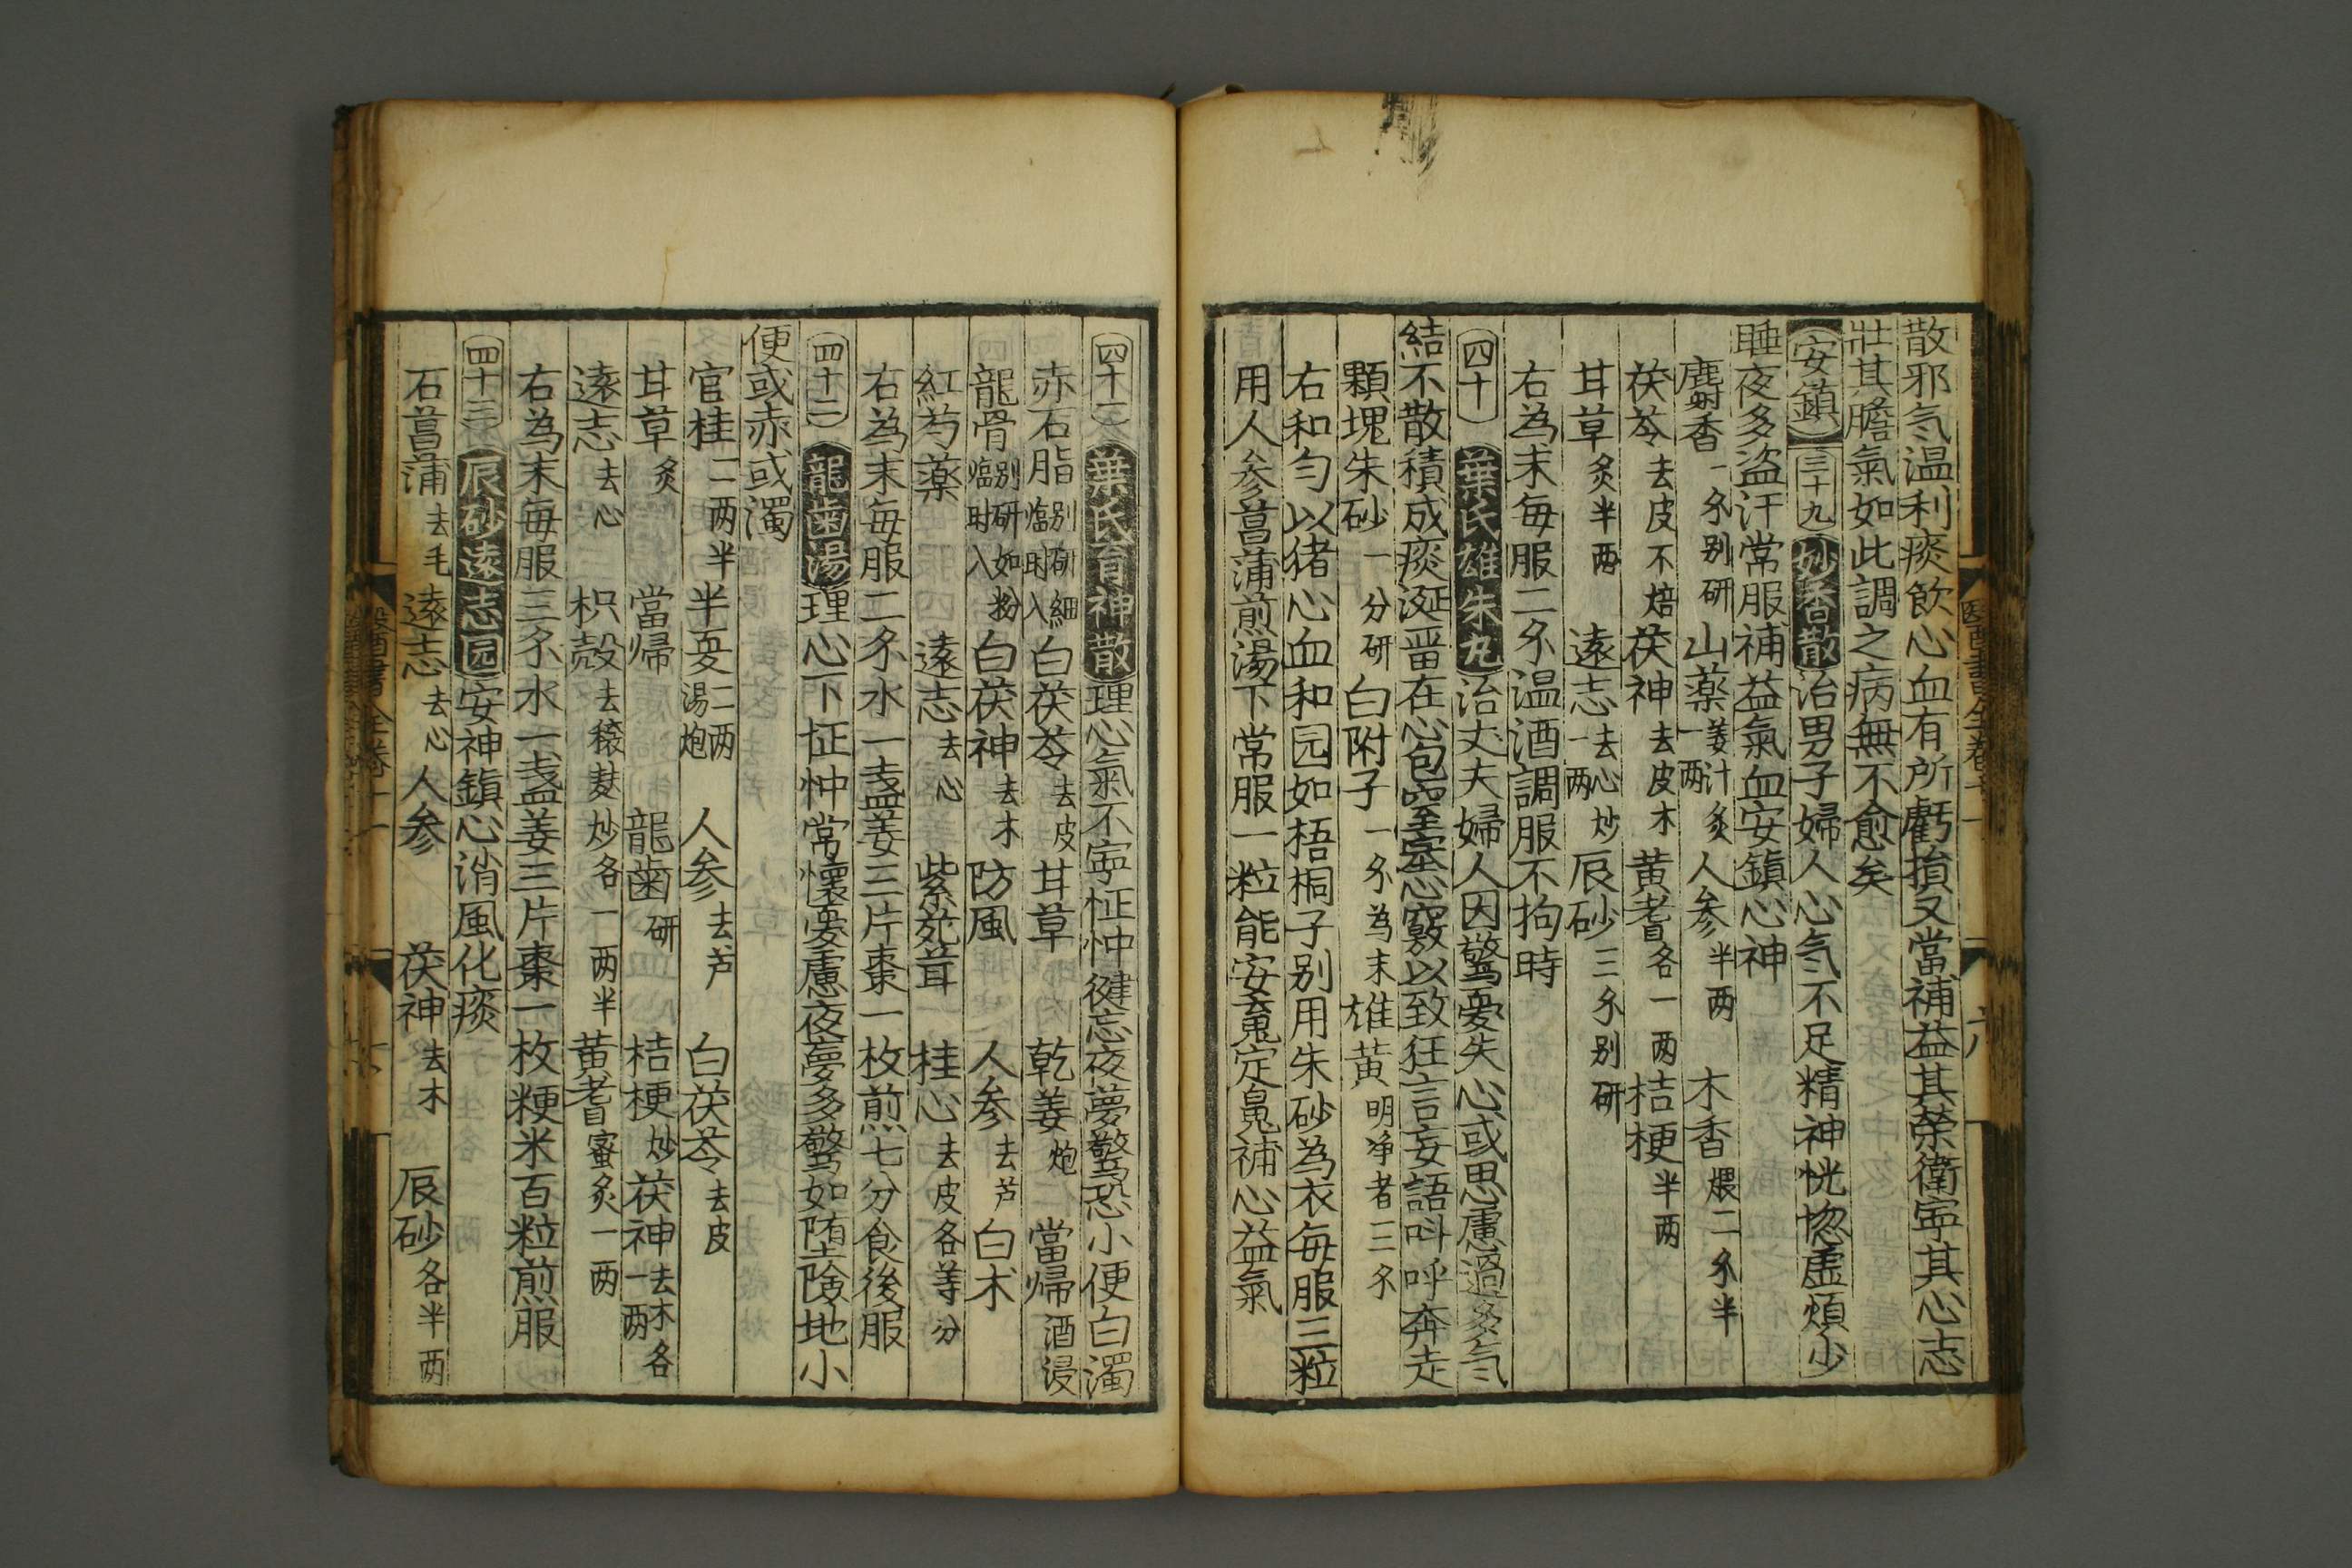 散邪气温利痰飲心血有所虧損又當補益其榮衛寕其心志
壯其膽氣如此調之病無不愈矣
安鎮 三十九 妙香散 治男子婦人心气不足精神恍惚虚煩少
睡夜多盗汗常服補益氣血安鎮心神
麝香一分别研 山薬姜汁炙一两 人参半两 木香煨二分半
茯苓去皮不焙 茯神去皮木 黄耆各一两 桔梗半两
甘草炙半两 遠志去心炒一两 辰砂三分别研
右為末毎服二分温酒調服不拘時
四十 葉氏雄朱丸 治丈夫婦人因驚憂失心或思慮過多气
結不散積成痰涎畄在心包窒塞心竅以致狂言妄語呌呼奔走
顆塊朱砂一分研 白附子一分為末 雄黄明净者三分
右和匀以猪心血和园如梧桐子别用朱砂為衣毎服三粒
用人参菖蒲煎湯下常服一粒能安䰟定魄補心益氣
四十一 葉氏育神散 理心氣不寕怔忡健忘夜夢驚恐小便白濁
赤石脂别研細臨时入 白茯苓去皮 甘草 乾姜炮 當帰酒浸
龍骨别研如粉臨时入 白茯神去木 防風 人参去芦 白术
紅芍薬 遠志去心 紫菀茸 桂心去皮各等分
右為末毎服二分水一盏姜三片棗一枚煎七分食後服
四十二 龍齒湯 理心下怔忡常懷憂慮夜夢多驚如堕險地小
便或赤或濁
官桂二两半 半夏二两湯炮 人参去芦 白茯苓去皮
甘草炙 當帰 龍齒研 桔梗炒 茯神去木各一两
遠志去心 枳殼去穰麸炒各一两半 黄耆蜜炙一两
右為末毎服三分水一盏姜三片棗一枚粳米百粒煎服
四十三 辰砂遠志园 安神鎮心消風化痰
石菖蒲去毛 遠志去心 人参 茯神去木 辰砂各半两